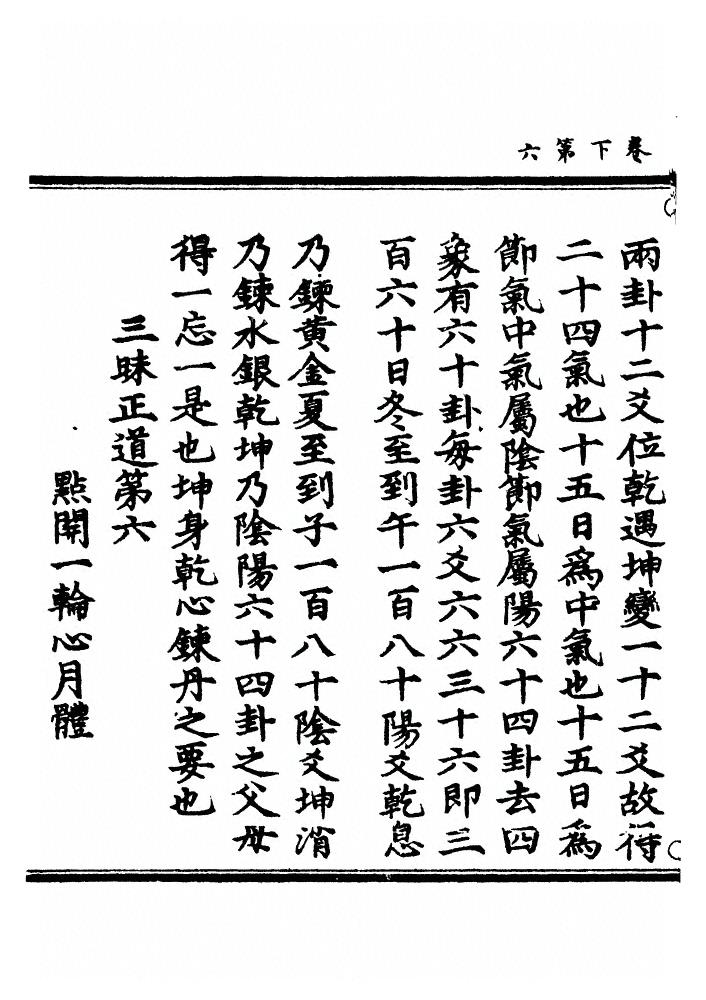 卷下第六
兩卦十二爻位乾遇坤變一十二爻故得
二十四氣也十五日為中氣也十五日為
節氣中氣屬陰節氣屬陽六十四卦去四
象有六十卦每卦六爻六六三十六即三
百六十日冬至到午一百八十陽爻乾息
乃鍊黃金夏至到子一百八十陰爻坤消
乃鍊水銀乾坤乃陰陽六十四卦之父母
得一忘一是也坤身乾心鍊丹之要也
三昧正道第六
點開一輪心月體